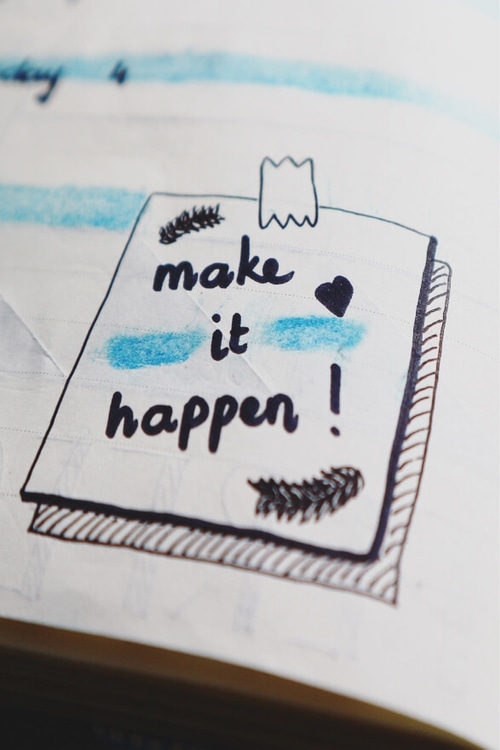 4
make
it
happen!